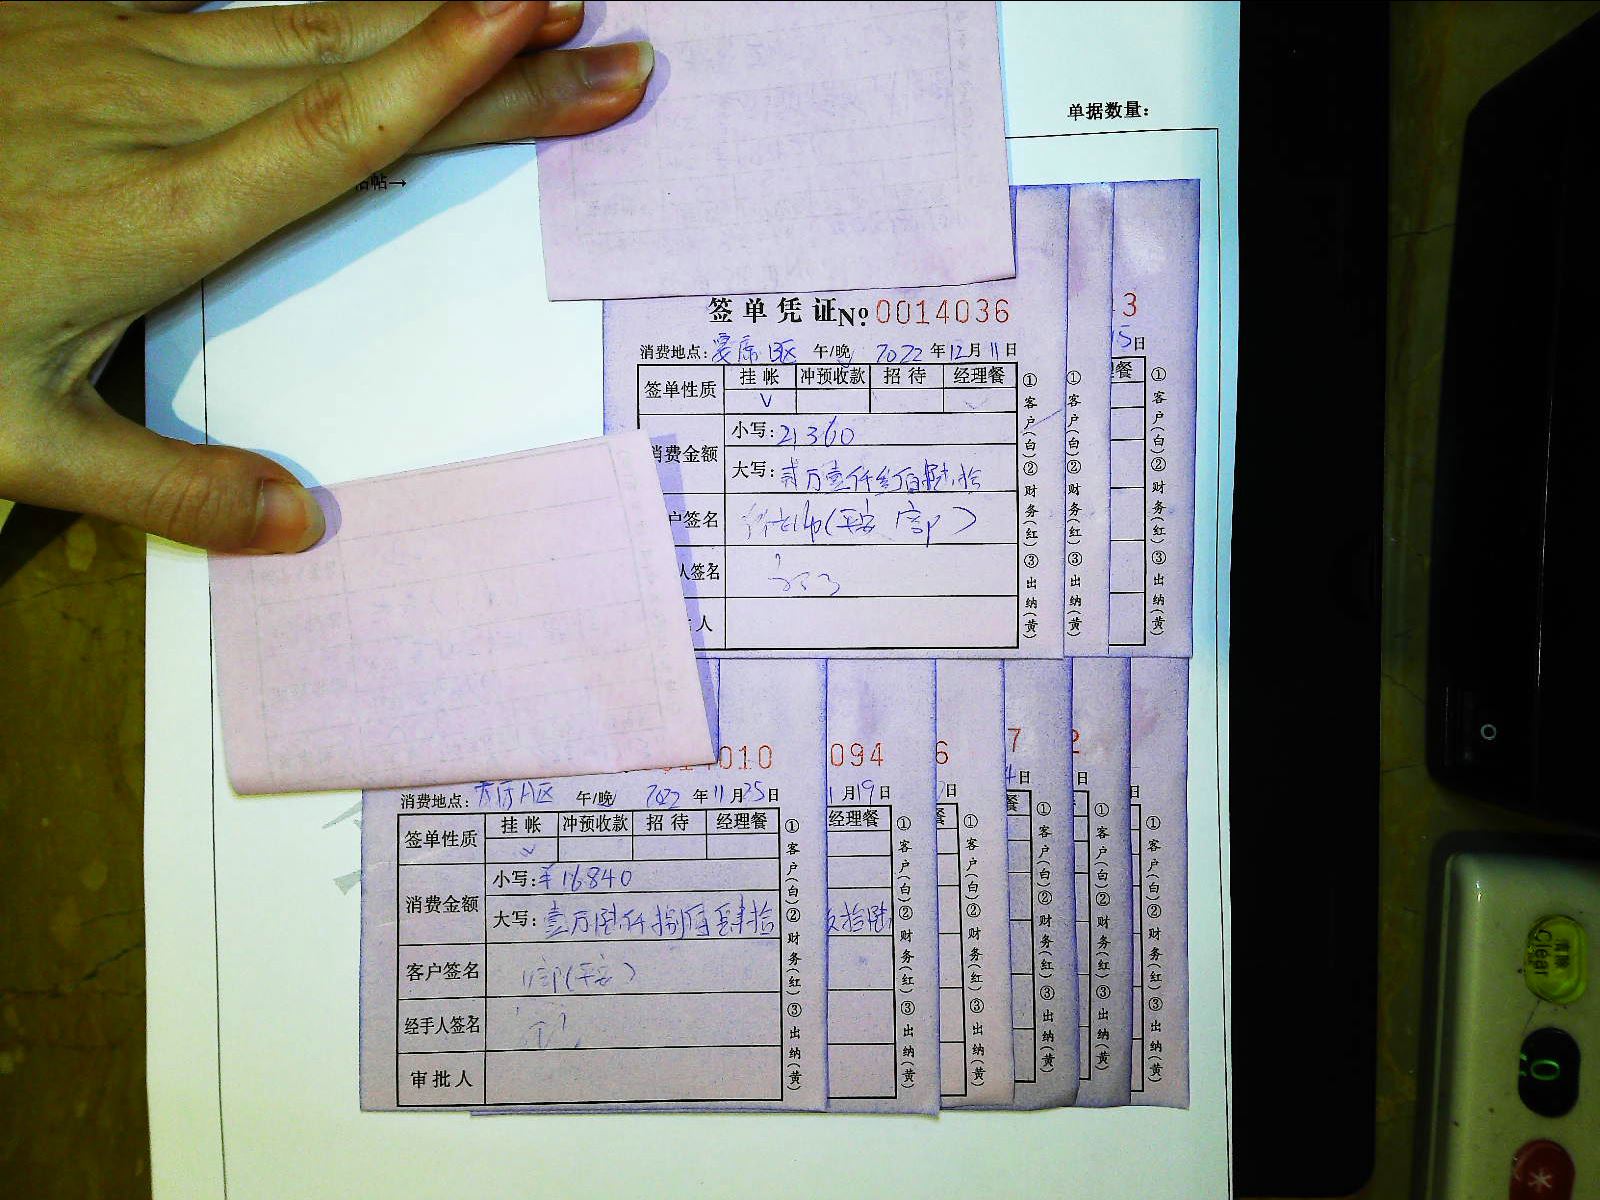 单据数量：
帖→
签单凭证№ 0014036
3
消费地点： B区 午/晚 2022 年 12 月 11 日
15日
签单性质 挂帐 冲预收款 招待 经理餐
√
消费金额 小写：21360
大写：贰万壹仟叁佰陆拾
户签名 (平安 )
人签名
人
①客户(白)②财务(红)③出纳(黄)
①客户(白)②财务(红)③出纳(黄)
餐
①客户(白)②财务(红)③出纳(黄)
010
094
6
7
2
消费地点： A区 午/晚 2022 年 11 月 25 日
月19日
日
4日
日
日
签单性质 挂帐 冲预收款 招待 经理餐
√
经理餐
餐
餐
消费金额 小写：¥16840
大写：壹万陆仟捌佰肆拾
拾陆
客户签名 (平安)
经手人签名
审批人
①客户(白)②财务(红)③出纳(黄)
①客户(白)②财务(红)③出纳(黄)
①客户(白)②财务(红)③出纳(黄)
①客户(白)②财务(红)③出纳(黄)
①客户(白)②财务(红)③出纳(黄)
①客户(白)②财务(红)③出纳(黄)
清除
Clear
0
*